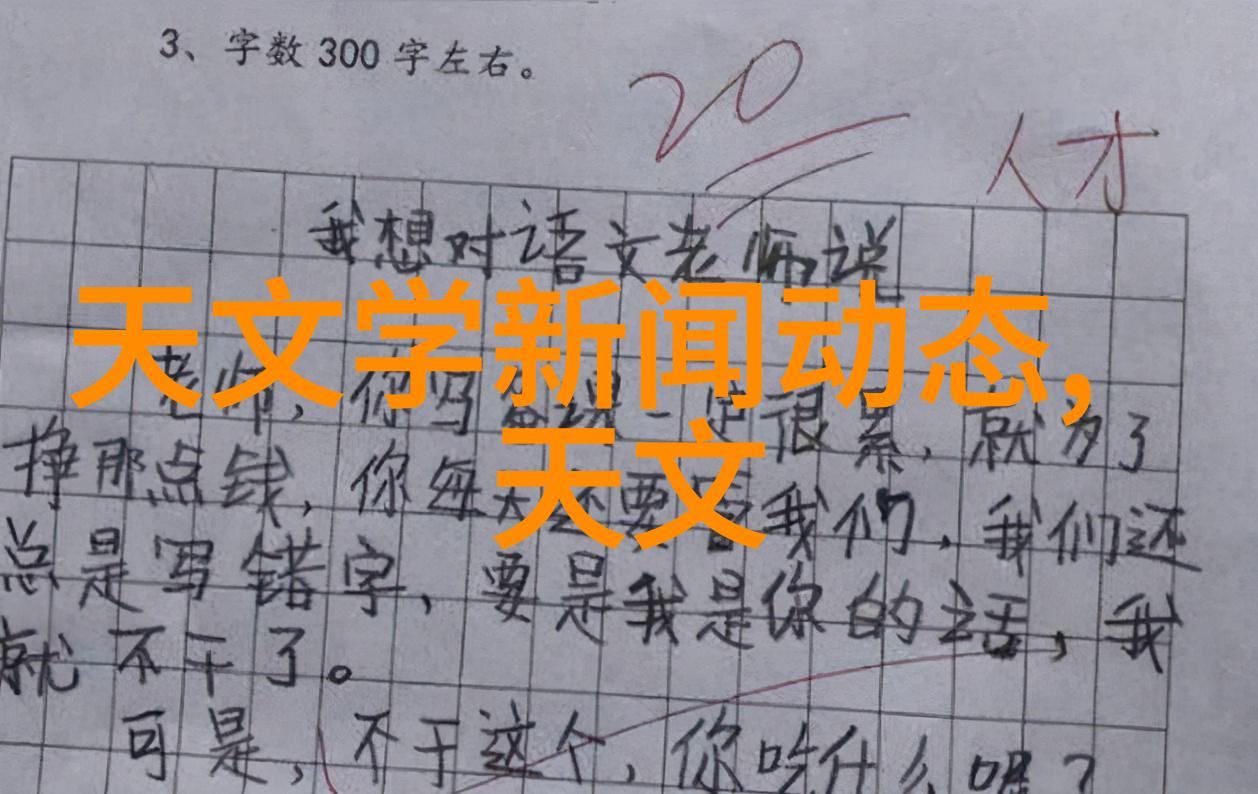 3、字数 300 字左右。
20
人才
我想对语文老师说
天文学新闻动态,
天文
老师,你写备课一定很累,就为了
挣那点钱,你每天还要管我们,我们还
总是写错字,要是我是你的话,我
就不干了。
可是,不干这个,你吃什么呢?